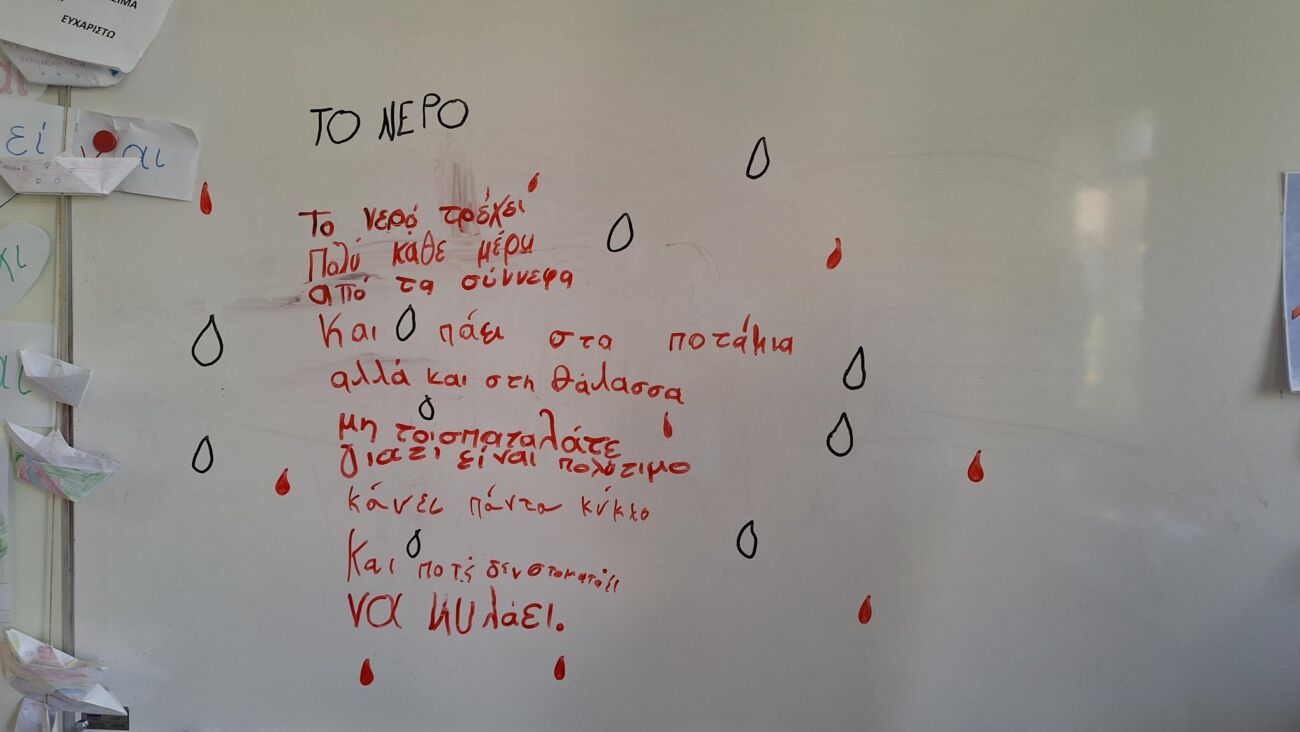 ΕΥΧΑΡΙΣΤΩ
εί ναι
ΤΟ ΝΕΡΟ
Το νερό τρέχει
Πολύ καθε μέρα
από τα σύννεφα
Και πάει στα ποτάμια
αλλά και στη θάλασσα
μη το σπαταλάτε
γιατί είναι πολύτιμο
κάνει πάντα κύκλο
Και ποτέ δεν σταματάει
να κυλάει.